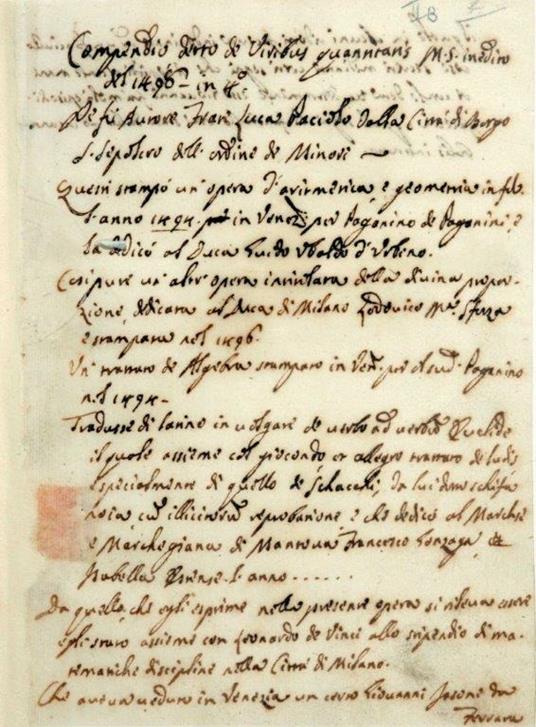 Compendio detto de Viribus quantitatis M.S. inedito
del 1496 in 4º
Ne fu Autore Frat Luca Paciolo dalla Città di Borgo
S. Sepolcro dell'ordine de Minori
Questi stampò un'opera d'aritmetica e geometria in fol.
l'anno 1494. in Venezª per Paganino de Paganini, e
la dedicò al Duca Guido Ubaldo d'Urbino.
Così pure un'altr'opera intitolata della divina propor-
zione, dedicata al Duca di Milano Lodovico Mª Sforza
e stampata nel 1496.
Un trattato de Algebra stampato in Venª per el sudº Paganino
nel 1494.
Tradusse di latino in volgare de verbo ad verbum Euclide
il quale assieme col giocondo et allegro trattato de ludis
e specialmente di quello de Schacchi, da lui detto schifa
noia, cum illicitorum reprobatione, e che dedicò al Marchese
e Marchegiana di Mantova Francesco Gonzaga et
Isabella Estense. l'anno . . . . . .
Da quello, che egli esprime nella presente opera si rileva essere
egli stato assieme con Leonardo de Vinci allo stipendio di ma-
tematiche discipline nella Città di Milano.
Che aveva veduto in Venezia un certo Giovanni Jasone da
Ferrara